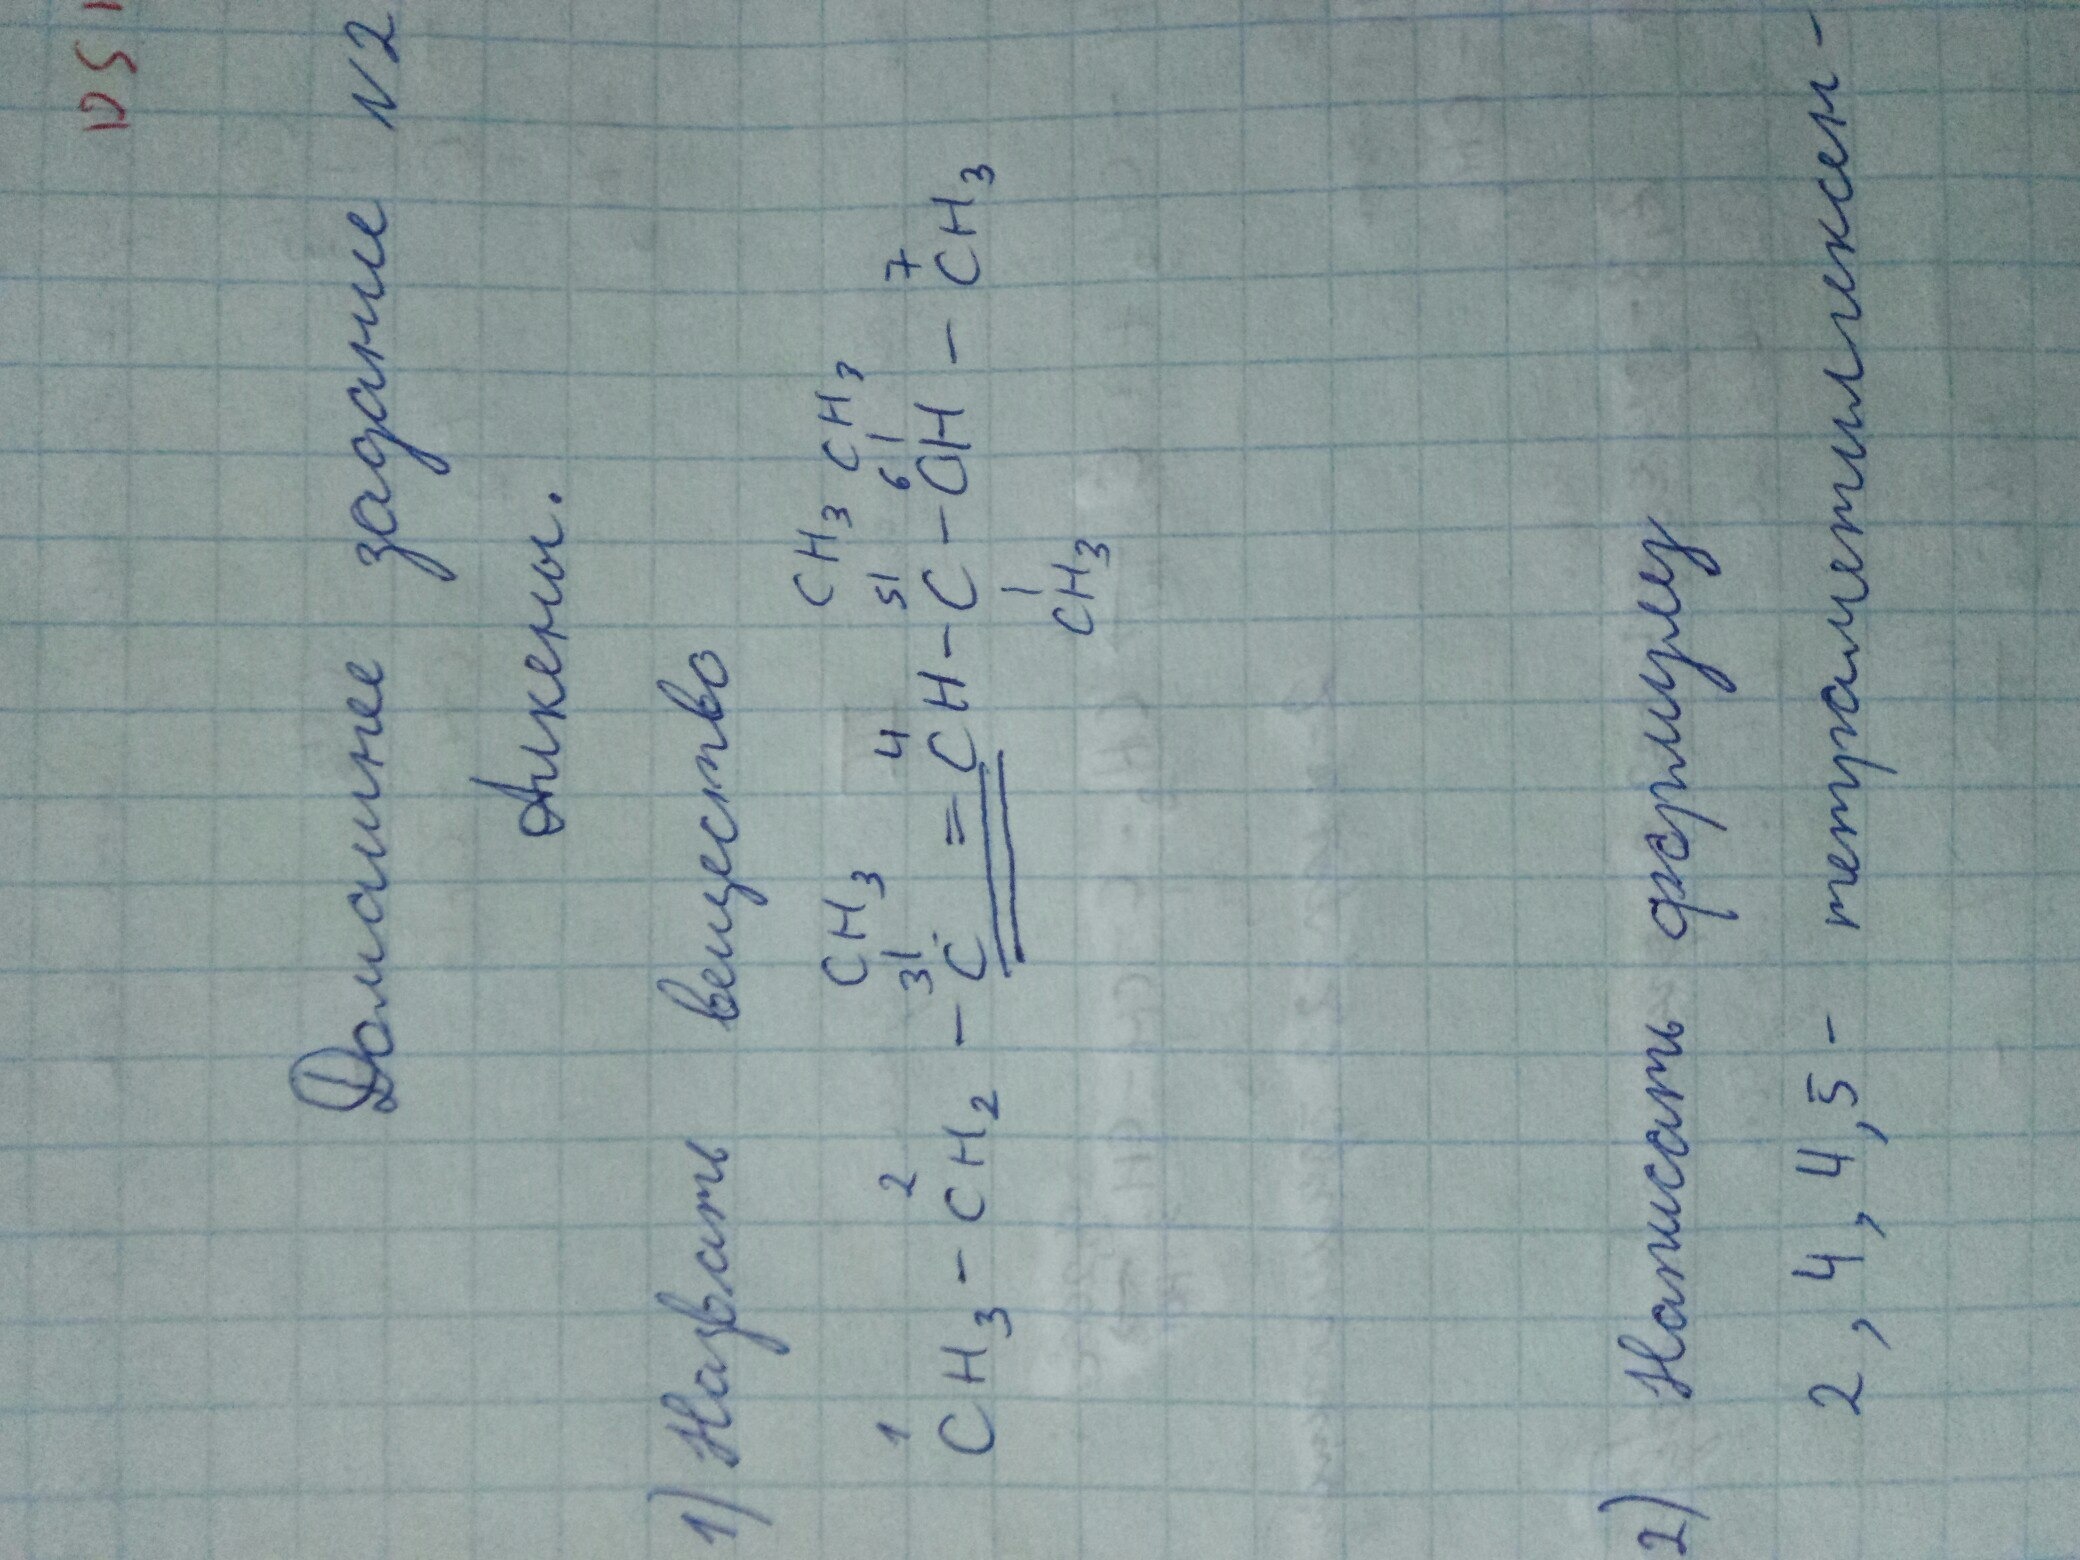 Домашнее задание N2
Алкены.
1) Назвать вещество
CH3 CH3 CH3
1 2 3 4 5 6 7
CH3 - CH2 - C = CH - C - CH - CH3
CH3
2) Написать формулу
2,4,4,5 - тетраметилгексен -